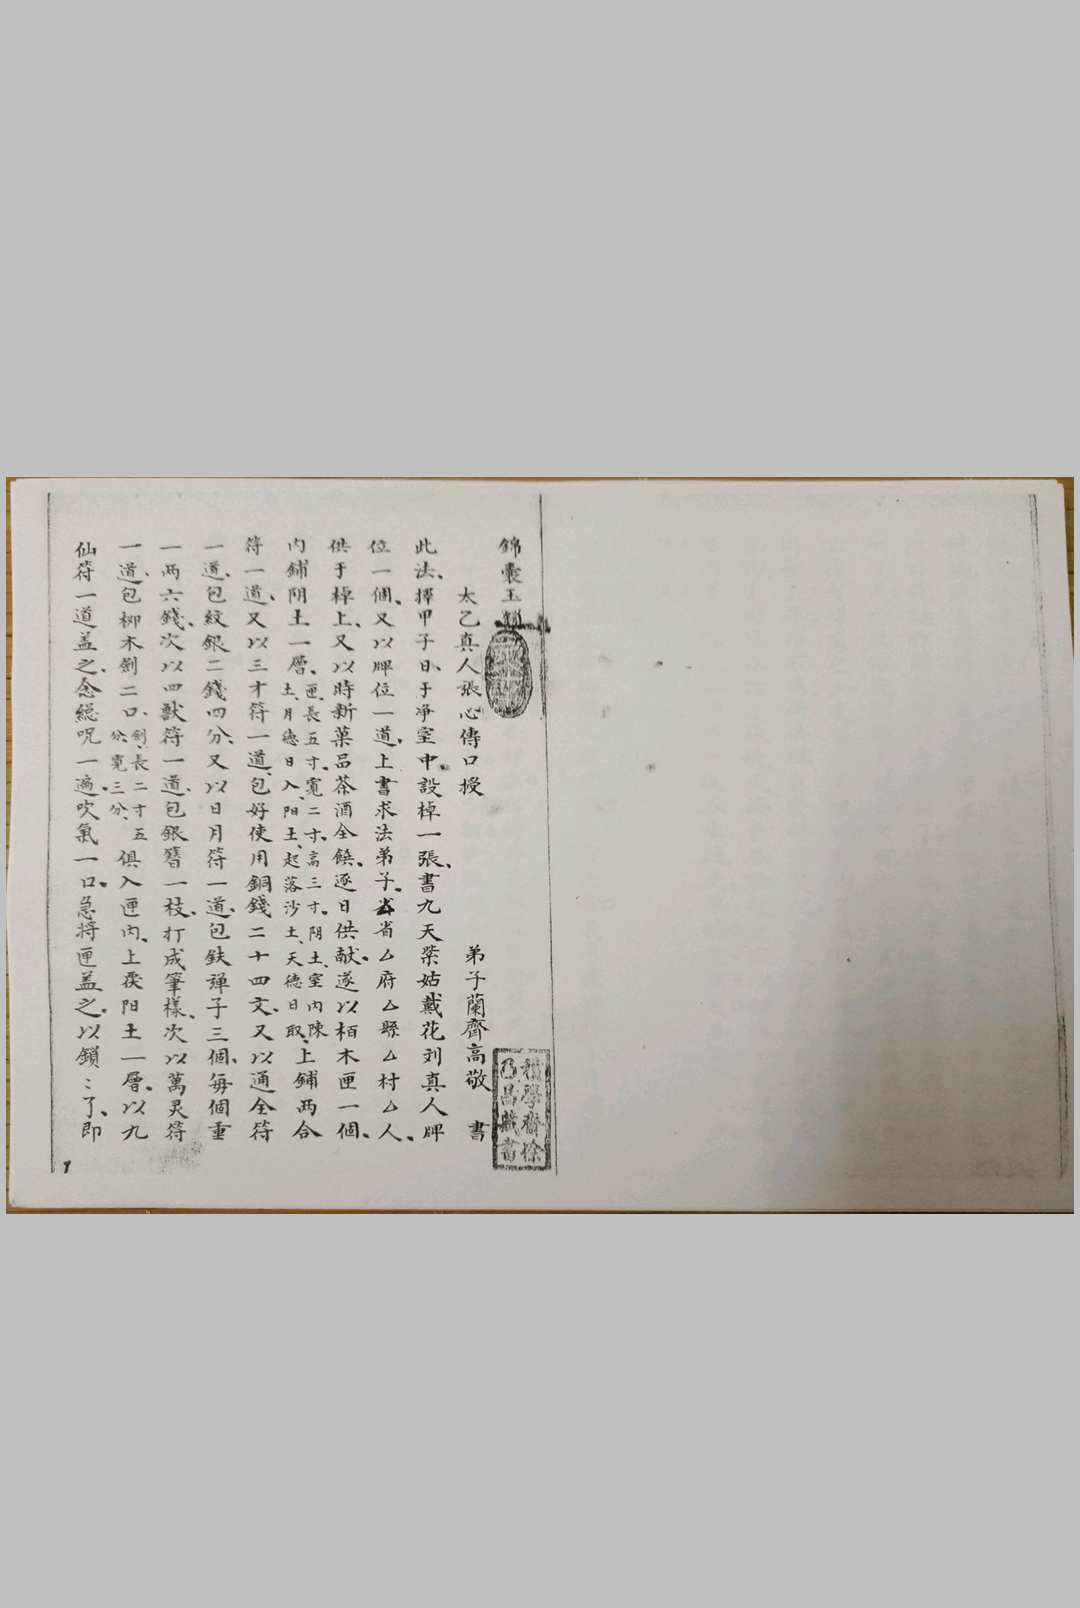 錦囊玉
太乙真人張心傳口授　弟子蘭齊高敬　書
此法、擇甲子日、于净室中、設棹一張、書九天榮姑戴花刘真人牌
位一個、又以牌位一道、上書求法弟子、省厶府厶縣厶村厶人、
供于棹上、又以時新菓品茶酒全饌、逐日供献、遂以栢木匣一個、
内鋪阴土一層、匣長五寸、寛二寸、高三寸、阴土、室内陳土、月德日入、阳土、起落沙土、天德日取、上鋪两合
符一道、又以三才符一道、包好使用銅錢二十四文、又以通全符
一道、包紋銀二錢四分、又以日月符一道、包鉄弹子三個、每個重
一两六錢、次以四獸符一道、包銀簪一枝、打成筆樣、次以萬灵符
一道、包柳木劍二口、劍長二寸五分、寛三分、俱入匣内、上後阳土一層、以九
仙符一道盖之、念總呪一遍、吹氣一口、急将匣盖之、以鎖〻了、即
積學齋徐
乃昌藏書
1